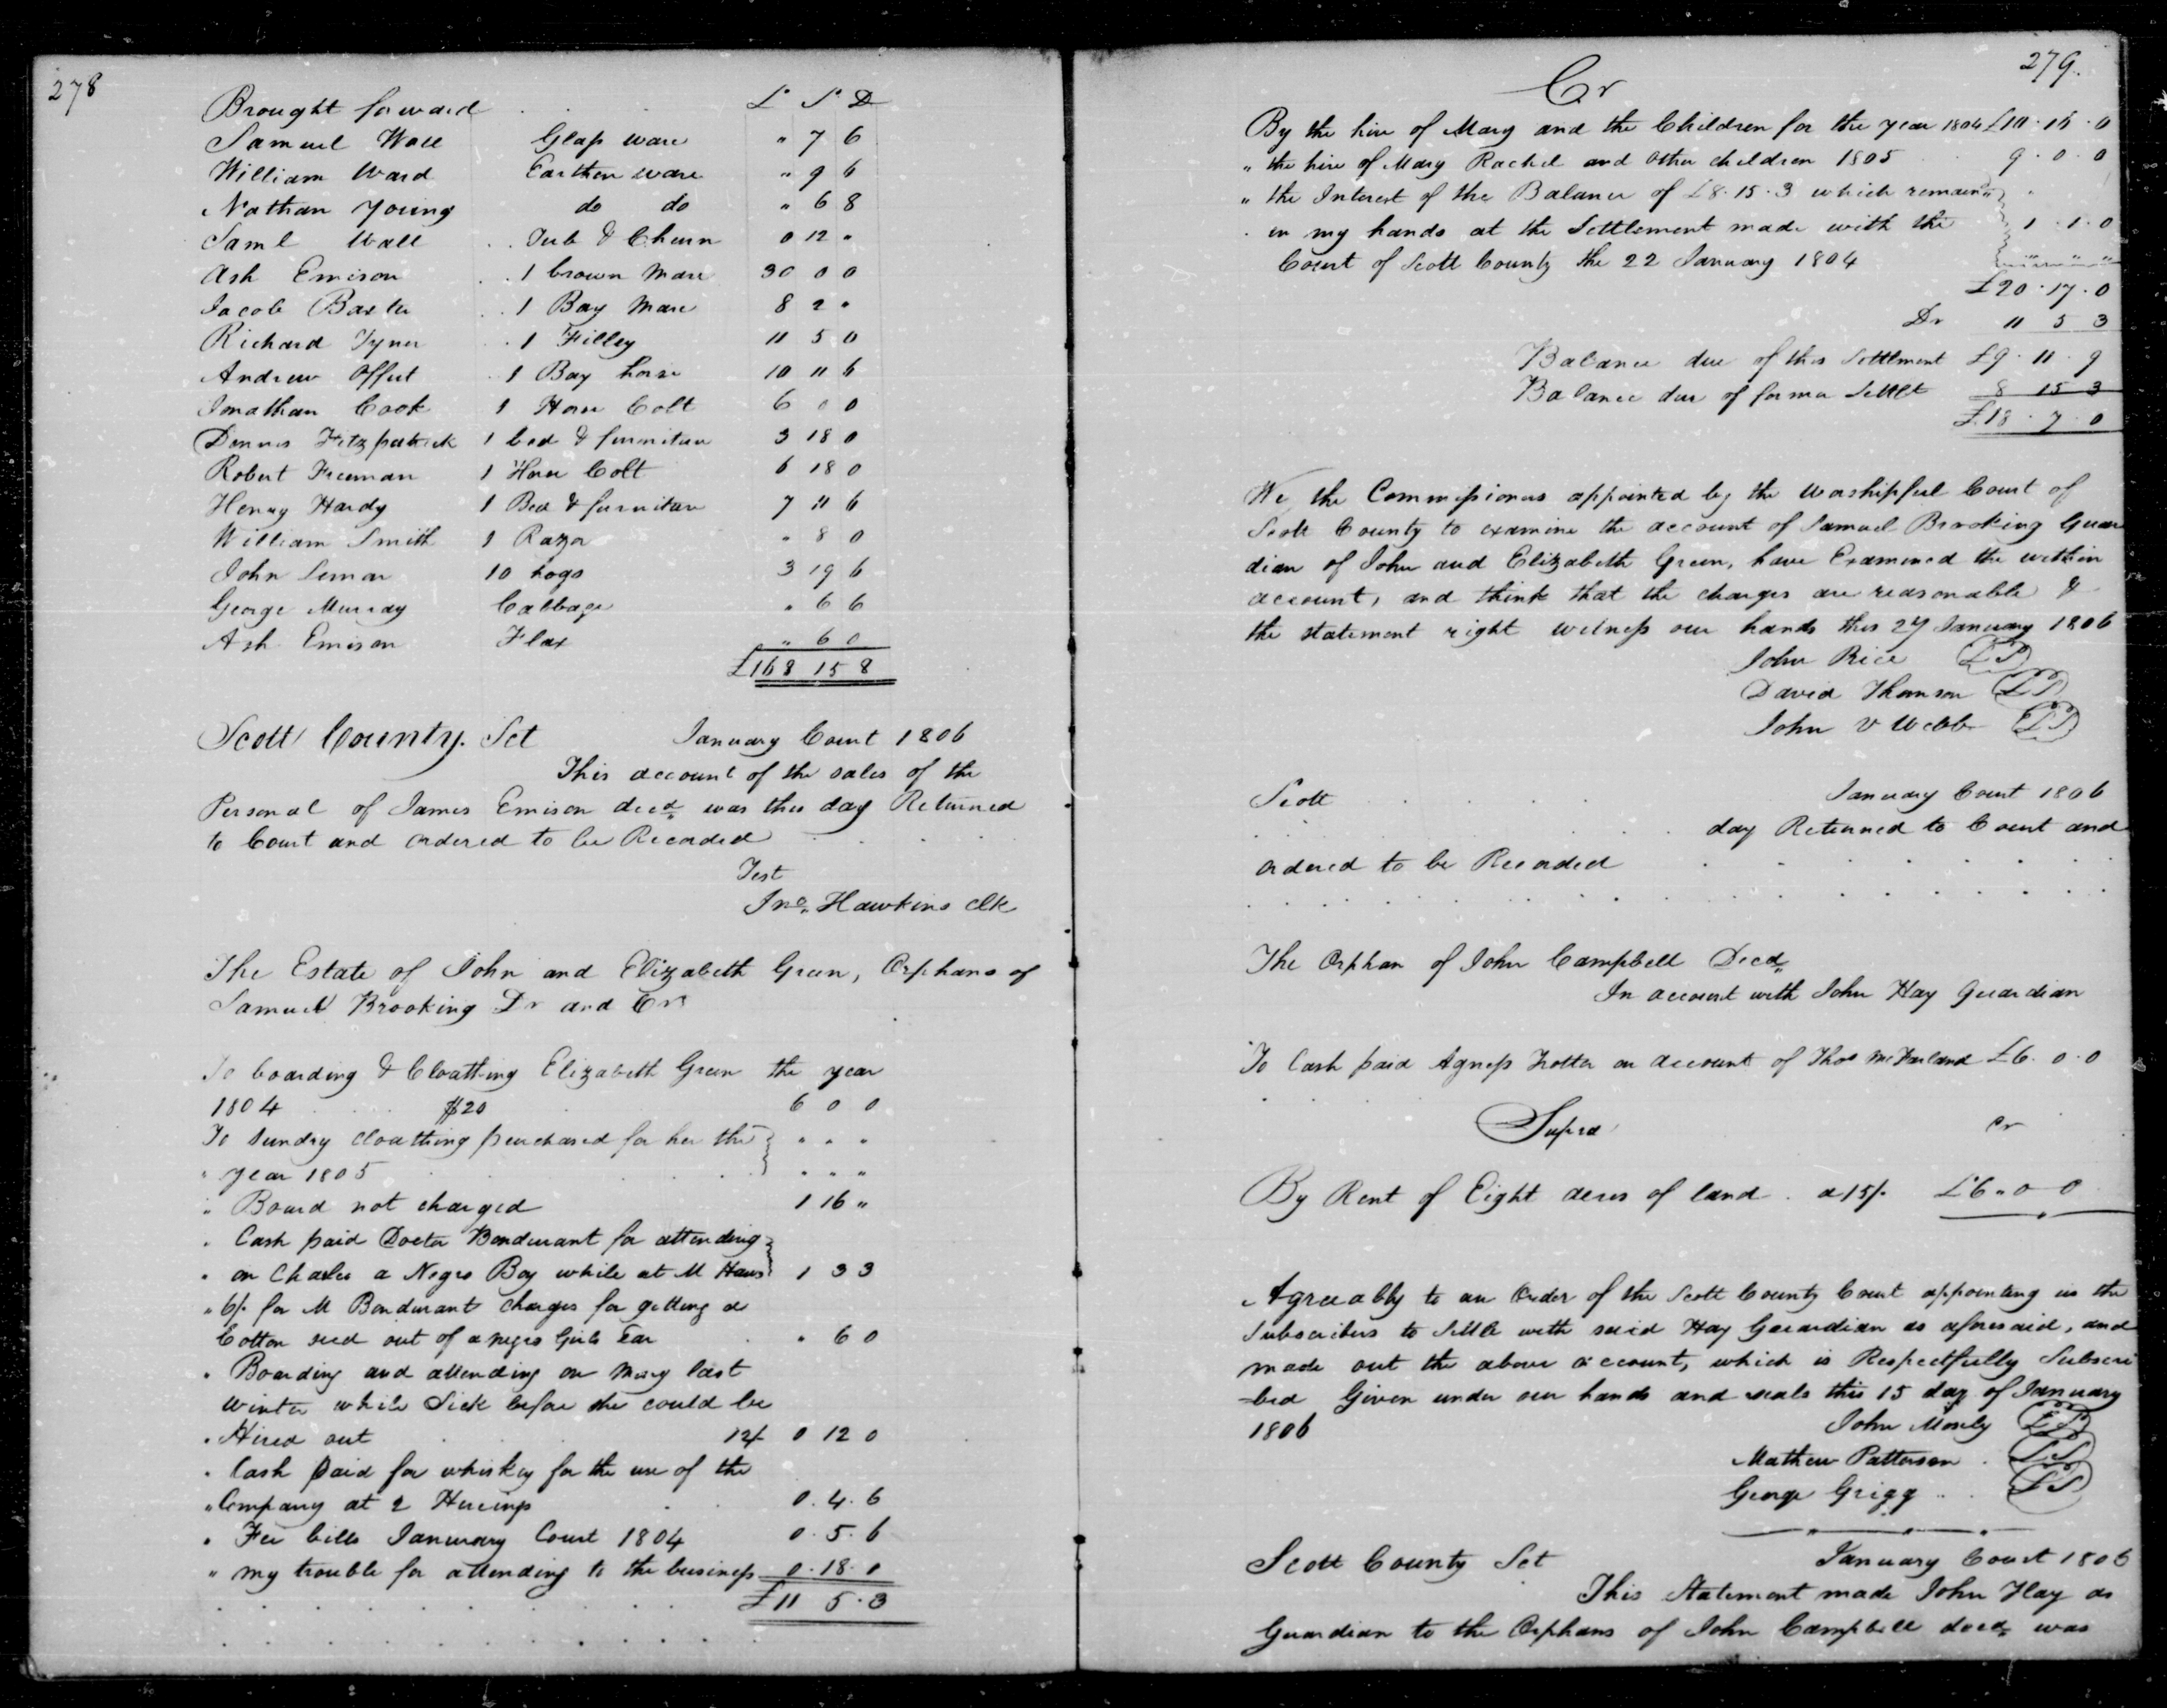 278
Brought forward L S D
Samuel Wall Glass ware " 7 6
William Ward Earthen ware " 9 6
Nathan Young do do " 6 8
Saml Wall Tub & Churn 0 12 "
Ash Emison 1 brown Mare 30 0 0
Jacob Baxter 1 Bay Mare 8 2 "
Richard Tyner 1 Filley 11 5 0
Andrew Offut 1 Bay horse 10 11 6
Jonathan Cook 1 Horse Colt 6 0 0
Dennis Fitzpatrick 1 bed & furniture 3 18 0
Robert Freeman 1 Horse Colt 6 18 0
Henry Hardy 1 Bed & furniture 7 11 6
William Smith 1 Razor " 8 0
John Lemon 10 hogs 3 19 6
George Murray Cabbage " 6 6
Ash Emison Flax " 6 0
£168 15 8
Scott County. Sct January Court 1806
This account of the sales of the
Personal of James Emison decd was this day Returned
to Court and ordered to be Recorded
Test
Jno. Hawkins clk
The Estate of John and Elizabeth Green, Orphans of
Samuel Brooking Dr and Cr
To boarding & Cloathing Elizabeth Green the year
1804 $20 6 0 0
To sundry cloathing purchased for her the " " "
" year 1805 " " "
" Board not charged 1 16 "
" Cash paid Doctor Bondurant for attending
" on Charles a Negro Boy while at M Haws 1 3 3
" 6/. for M Bondurant charges for getting a
Cotton seed out of a negro Girls Ear " 6 0
" Boarding and attending on Mary last
winter while Sick before she could be
" Hired out 12/. 0 12 0
" Cash paid for whiskey for the use of the
" Company at 2 Hireings 0. 4. 6
" Fee bills January Court 1804 0. 5. 6
" my trouble for attending to the business 0. 18. 0
£11 5. 3
279.
Cr
By the hire of Mary and the Children for the year 1804 £10. 16. 0
" the hire of Mary Rachel and other children 1805 9. 0. 0
" the Interest of the Balance of £8. 15. 3 which remain"
in my hands at the Settlement made with the 1. 1. 0
Court of Scott County the 22 January 1804 " " "
£20. 17. 0
Dr 11 5 3
Balance due of this Settlment £9. 11. 9
Balance due of former Settlt 8 15 3
£18. 7. 0
We the Commissioners appointed by the Worshipful Court of
Scott County to examine the account of Samuel Brooking Guar
dian of John and Elizabeth Green, have Examined the within
account, and think that the charges are reasonable &
the statement right witness our hands this 27 January 1806
John Rice LS
David Thomson LS
John V Webb LS
Scott January Court 1806
day Returned to Court and
ordered to be Recorded
The Orphan of John Campbell Decd
In account with John Hay Guardian
To Cash paid Agness Trotter on account of Thos McFarland £6. 0. 0
Supra cr
By Rent of Eight acres of land a 15/. £6. 0 0
Agreeably to an Order of the Scott County Court appointing us the
subscribers to settle with said Hay Guardian as aforesaid, and
made out the above account, which is Respectfully Subscri
-bed Given under our hands and seals this 15 day of January
1806 John Mosely LS
Mathew Patterson LS
George Grigg LS
Scott County Sct January Court 1806
This Statement made John Hay as
Guardian to the Orphans of John Campbell decd was